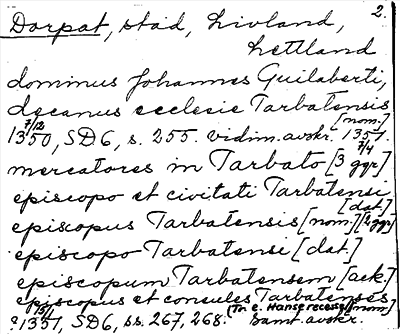 2.
Dorpat, stad, Livland,
Lettland
dominus Johannes Guilaberti,
decanus ecclesie Tarbatensis
[nom.]
7/12 1350, SD6, s. 255. vidim. avskr. 1351 7/4
mercatores in Tarbato [3 ggr]
episcopo et civitati Tarbatensi
[dat.]
episcopus Tarbatensis [nom.] [2 ggr]
episcopo Tarbatensi [dat.]
episcopum Tarbatensem [ack.]
episcopus et consules Tarbatenses
[nom.]
1351, SD6, ss. 267, 268. (Tr. e. Hanserecesse) samt. avskr.